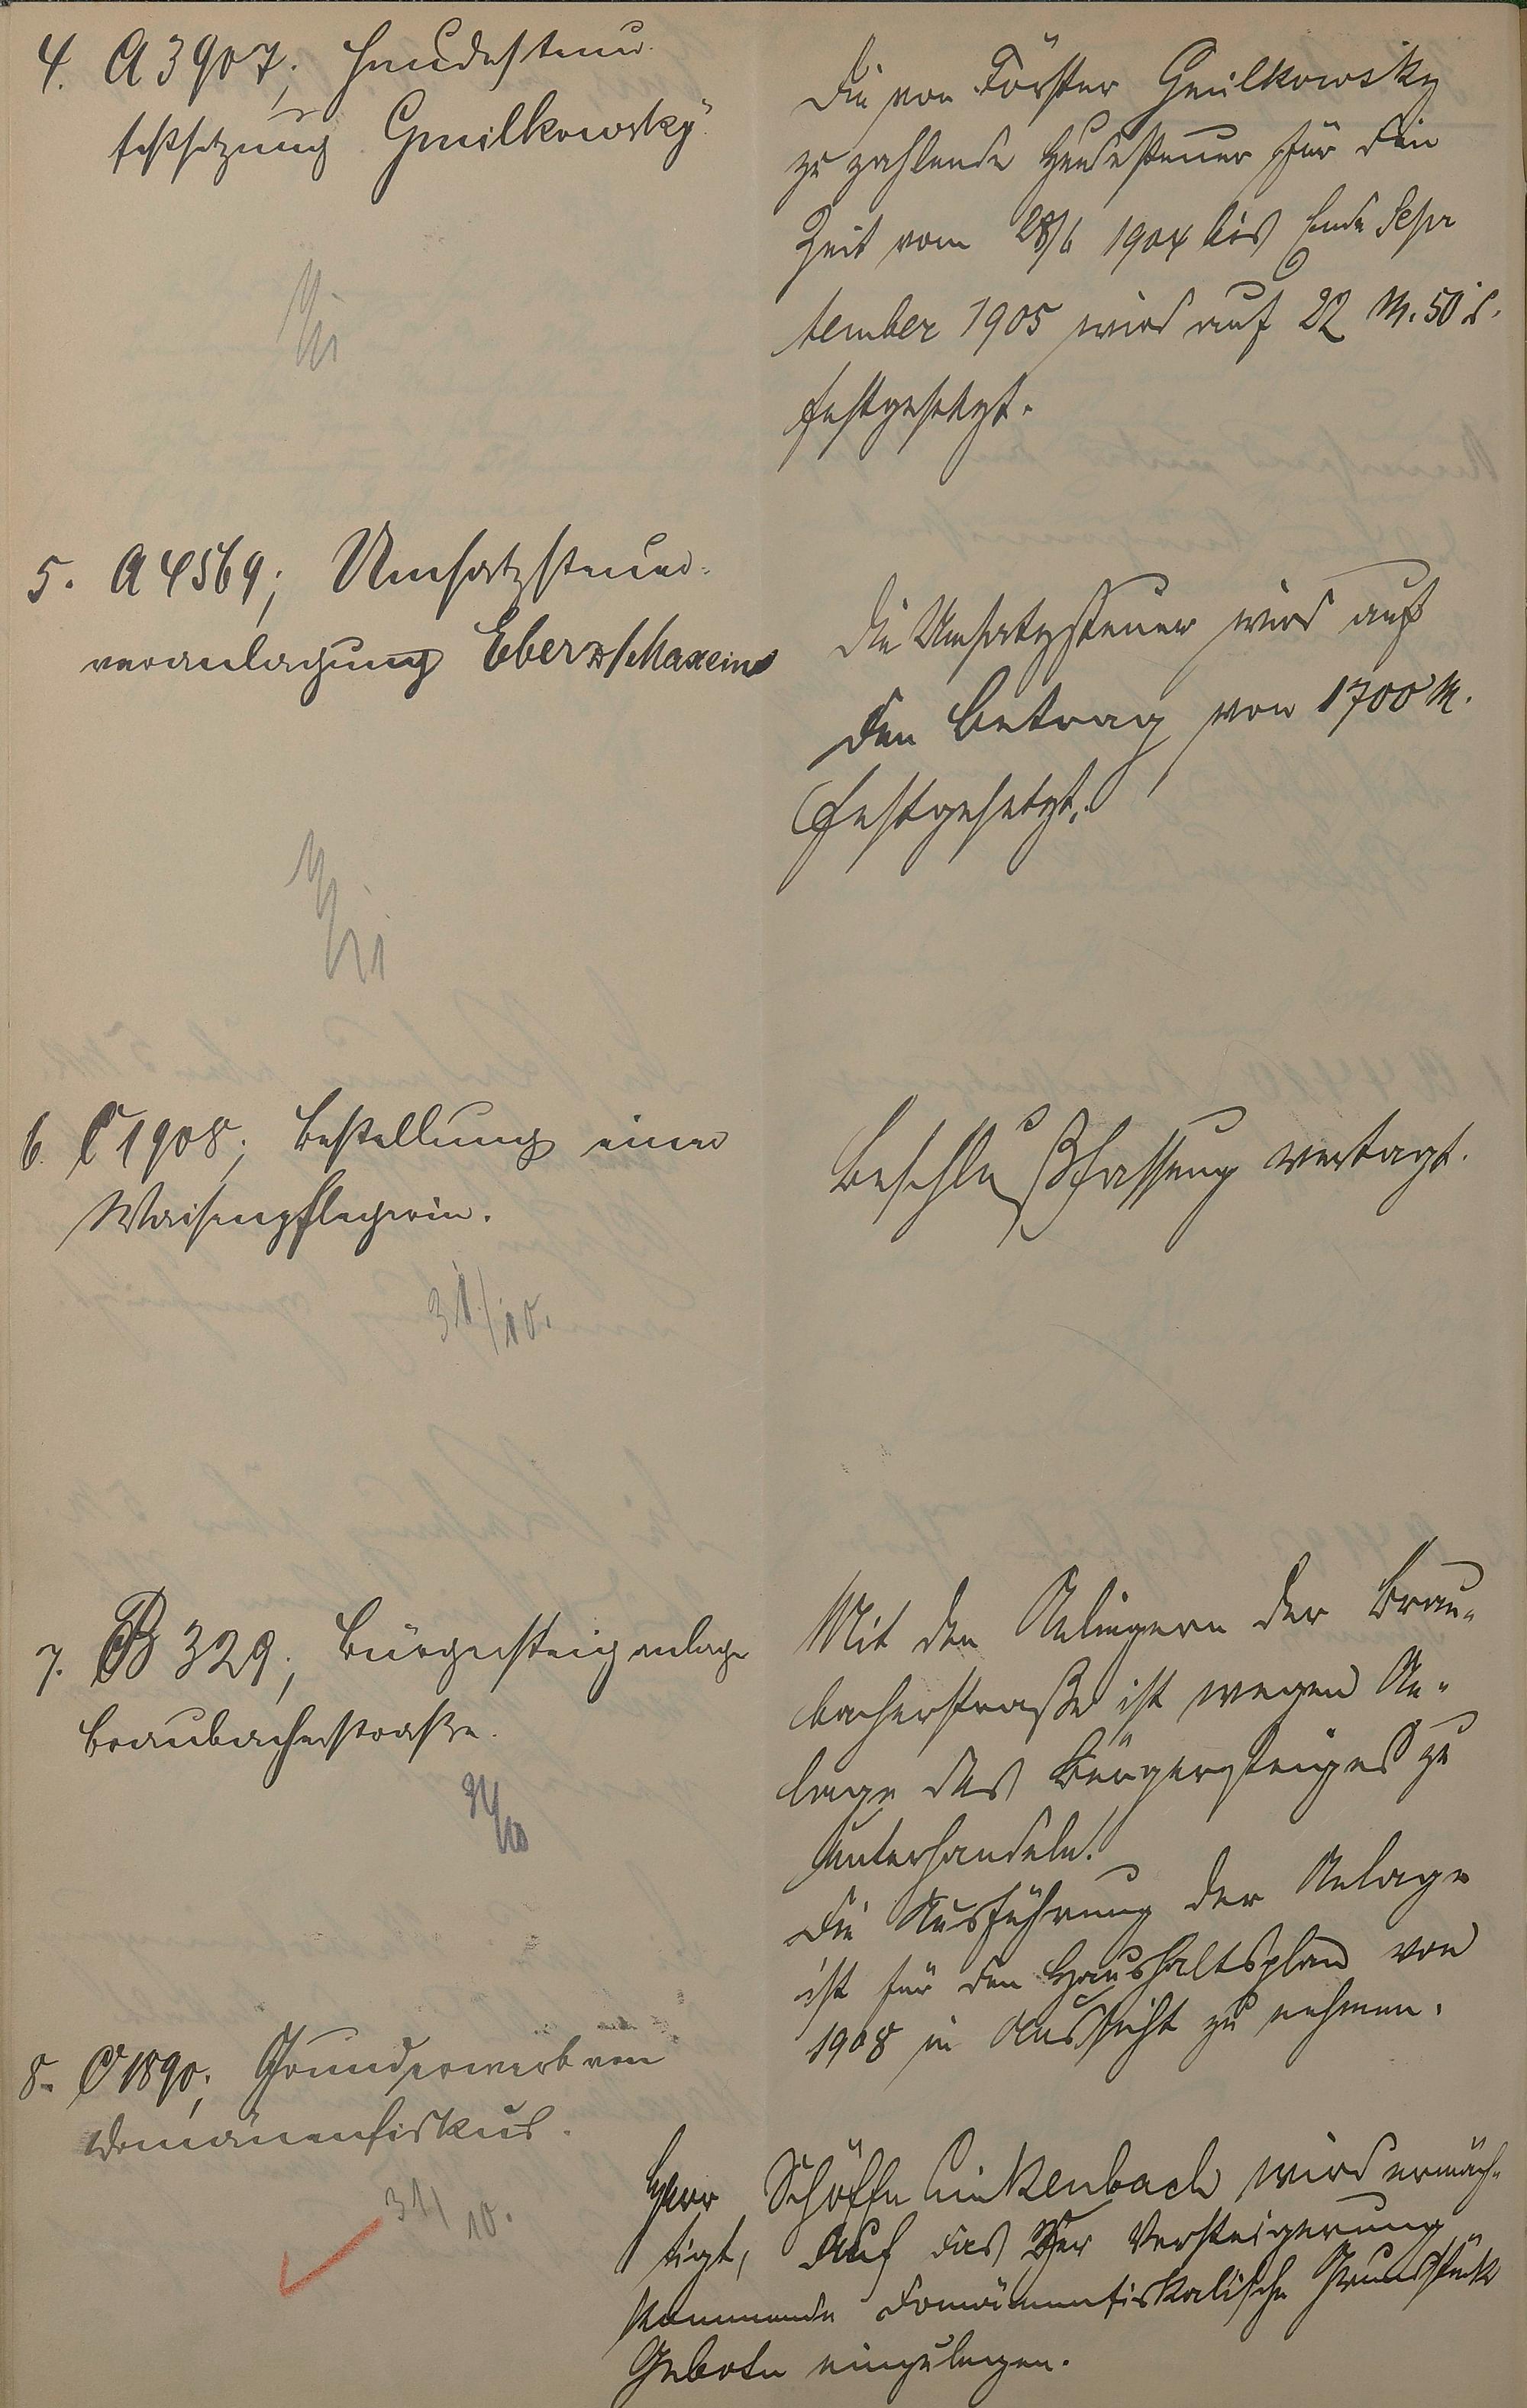 4. A 3907; Hundesteuer-
festsetzung Gmilkowsky.
Die von Förster Gmilkowsky
zu zahlende Hundesteuer für die
Zeit vom 28/6 1904 bis Ende Sep-
tember 1905 wird auf 22 M. 50 d.
festgesetzt.
5. A 4569; Umsatzsteuer-
veranlagung Eberz/Maxeine
Die Umsatzsteuer wird auf
den Betrag von 1700 M.
festgesetzt.
6. C 1908; Bestellung einer
Waisenpflegerin.
31/10.
Beschlußfassung vertagt.
7. B 329; Bürgersteiganlage
Braubacherstraße.
31/10
Mit den Anliegern der Brau-
bacherstraße ist wegen An-
lage des Bürgersteiges zu
unterhandeln.
Die Ausführung der Anlage
ist für den Haushaltsplan von
1908 in Aussicht zu nehmen.
8. C 1890; Grunderwerb von
Domänenfiskus.
31/10.
Herr Schöffe Linkenbach wird ermäch-
tigt, auf das zur Versteigerung
kommende domänenfiskalische Grundstück
Gebote einzulegen.